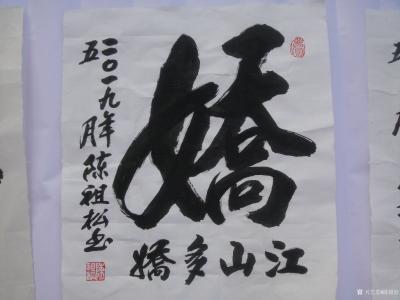 嬌
江山多嬌
二〇一九年
五月 陈祖松书